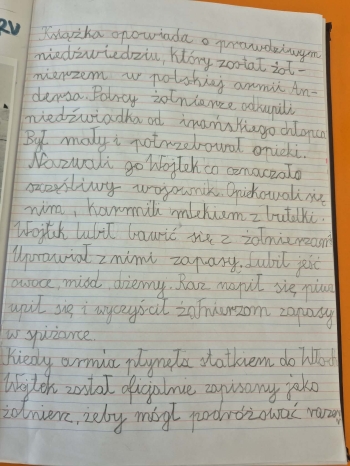 RV
Książka opowiada o prawdziwym
niedźwiedziu, który został żoł-
nierzem w polskiej armii An-
dersa. Polscy żołnierze odkupili
niedźwiadka od irańskiego chłopca
Był mały i potrzebował opieki.
Nazwali go Wojtek co oznaczało
szczęśliwy wojownik. Opiekowali się
nim, karmili mlekiem z butelki.
Wojtek lubił bawić się z żołnierzami
Uprawiał z nimi zapasy. Lubił jeść
owoce, miód, dżemy. Raz napił się piwa
upił się i wyczyścił żołnierzom zapasy
w spiżarce.
Kiedy armia płynęła statkiem do Włoch
Wojtek został oficjalnie zapisany jako
żołnierz, żeby mógł podróżować razem